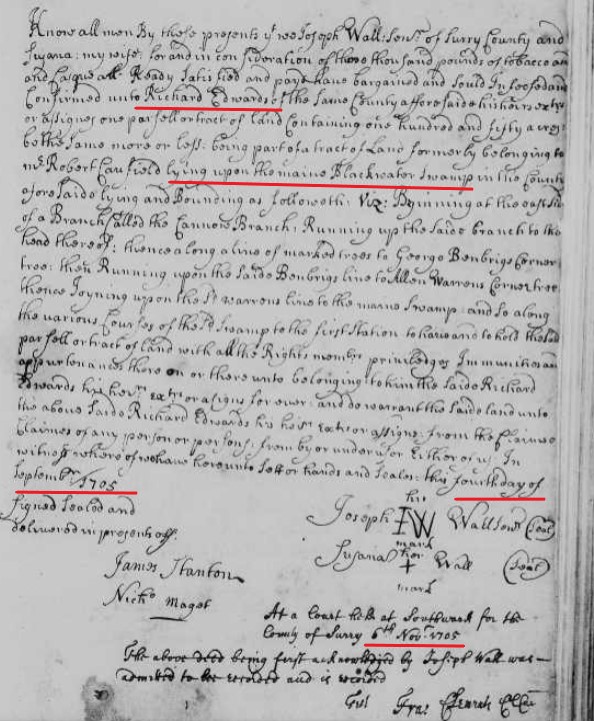 Know all men By these presents yt we Joseph Wall: Senr. of Surry County and
Susana: my wife: for and in consideration of three thousand pounds of tobacco and
and Casque all Ready Satisfied and payd have bargained and sould Infeosed and
Confirmed unto Richard Edwards of the same County afforesaide his heirs extrs
or assignes one parsell or tract of land Containing one hundred and fifty acres
be the same more or less: being part of a tract of Land formerly belonging to
mr. Robert Caufield lying upon the maine Blackwater Swamp in the County
afore Saide lying and Bounding as followeth: Viz: Beginning at the east side
of a Branch Called the Cannow Branch: Running up the Saide branch to the
head thereof: thence along a line of marked trees to George Benbrigs Corner
tree: then Running upon the Saide Benbrigs line to Allen Warrens Corner tree
thence Joyning upon the sd warrens line to the maine Swamp: and so along
the various Courses of the sd Swamp to the first Station to have and to hold the sd
parsell or tract of land with all the Rights membrs priviledges Immunities and
appurtenances there on or there unto belonging to him the Saide Richard
Edwards his heirs extrs or asigns for ever: and do warrant the said land unto
the above Saide Richard Edwards his heirs extrs or assigns: from the Claimes
Claimes of any person or persons: from by or under us or Either of us: In
witness where of we have hereunto sett or hands and Seales: this fourth day of
Septembr. 1705
Signed Sealed and
delivered in presents off:
his
Joseph IW Wall Senr (Seal)
mark
Susana her + Wall (Seal)
mark
James Stanton
Nicho Maget
At a Court held at Southwark for the
County of Surry 6th Novr. 1705
The above deed being first acknowledged by Joseph Wall was
admitted to be recorded and is recorded
Test Fra: Clements ClCur